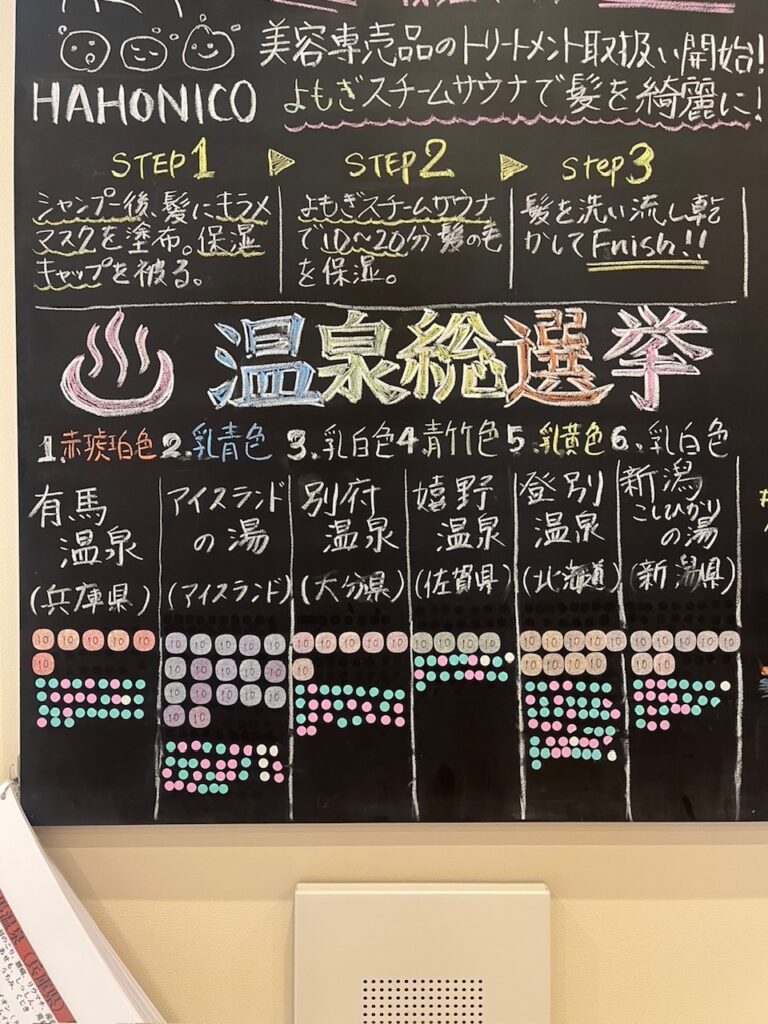 美容専売品のトリートメント取扱い開始!
HAHONICO
よもぎスチームサウナで髪を綺麗に!
STEP1
STEP2
step3
シャンプー後、髪にキラメ
マスクを塗布。保湿
キャップを被る。
よもぎスチームサウナ
で10~20分 髪の毛
を保湿。
髪を洗い流し乾
かしてFnish!!
温泉総選挙
1.赤琥珀色
2.乳青色
3.乳白色
4.青竹色
5.乳黄色
6.乳白色
有馬
温泉
(兵庫県)
アイスランド
の湯
(アイスランド)
別府
温泉
(大分県)
嬉野
温泉
(佐賀県)
登別
温泉
(北海道)
新潟
こしひかり
の湯
(新潟県)
10 10 10 10 10
10
10 10 10 10 10
10 10 10 10 10
10 10 10 10 10
10 10
10 10 10 10 10
10
10 10 10 10
10 10 10 10 10
10 10 10 10
10 10 10 10 10
10 10